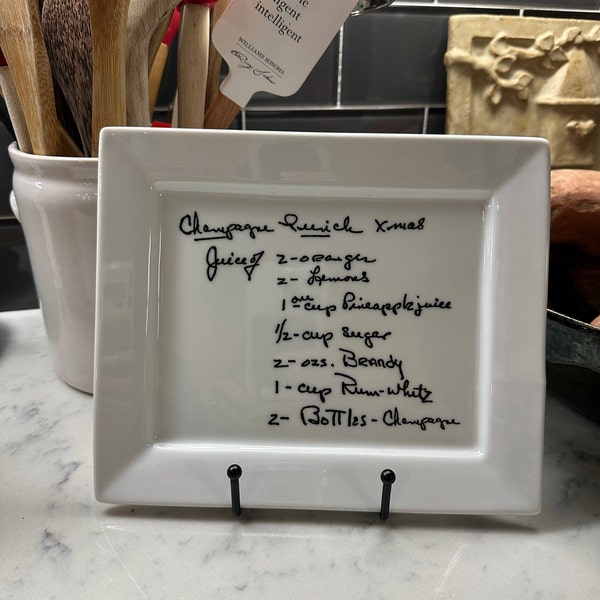 intelligent
WILLIAMS SONOMA
Champagne Punch Xmas
Juice of 2-oranges
2- Lemons
1 one cup Pineapple juice
1/2-cup sugar
2-ozs. BRANDY
1-cup Rum-White
2- BOTTLES-Champagne